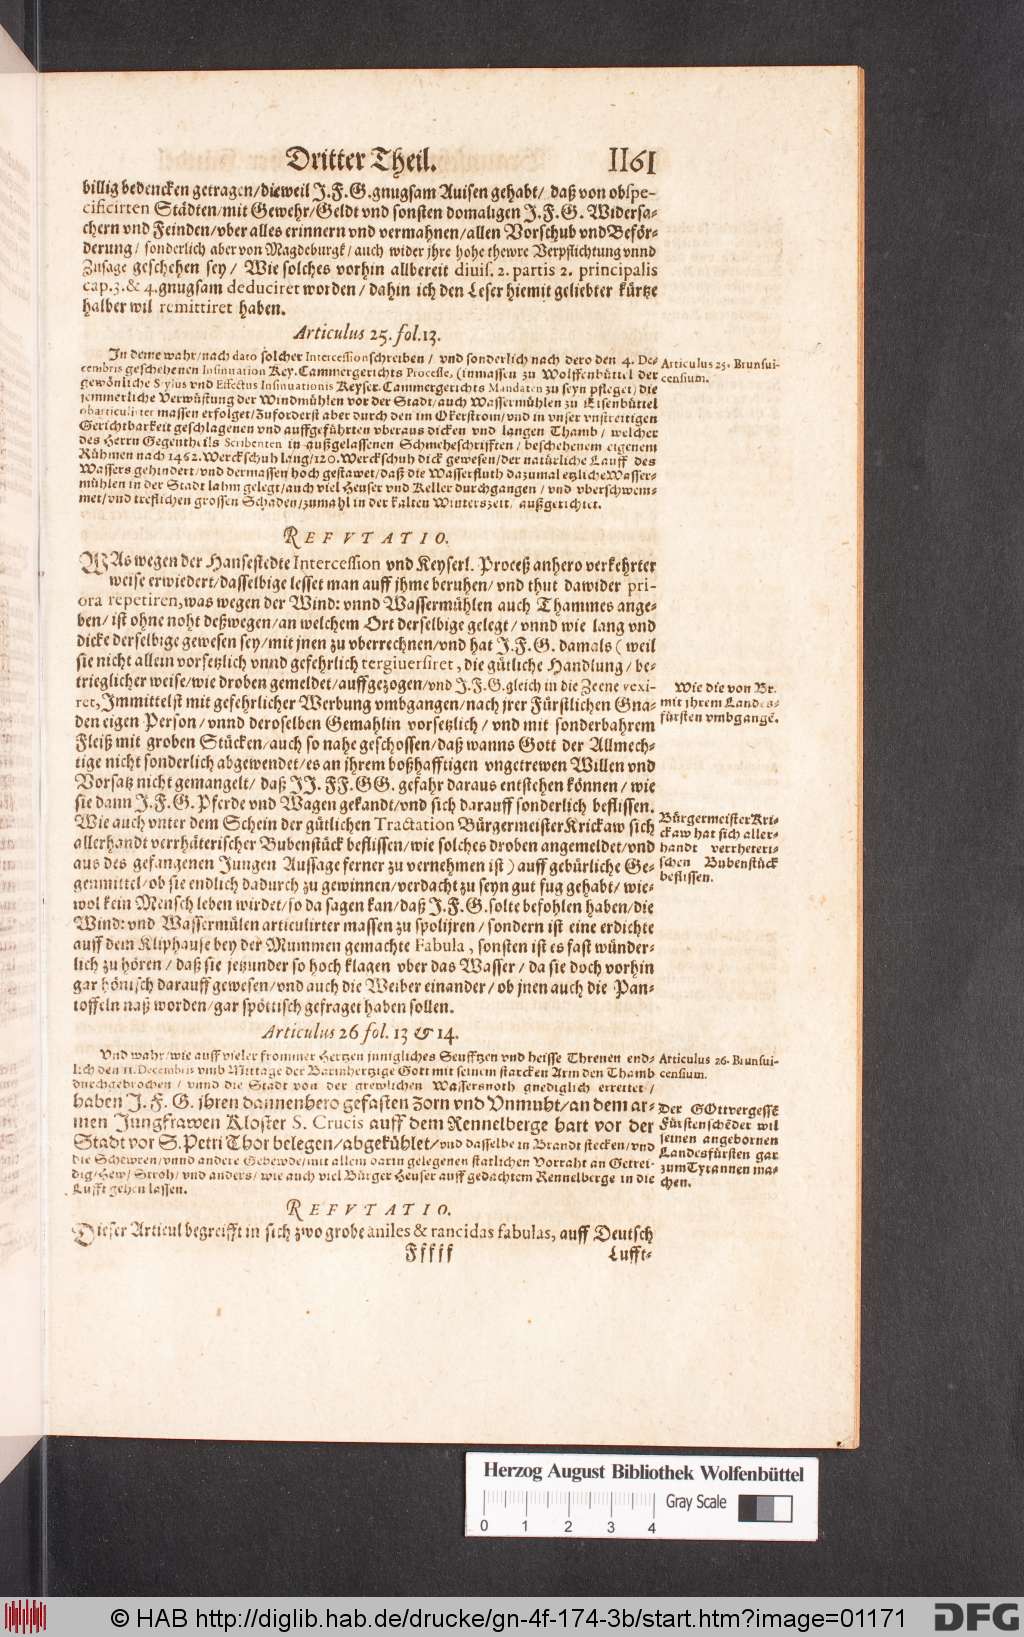 Dritter Theil. 1161
billig bedencken getragen/ dieweil J.F.G. gnugsam Auisen gehabt/ daß von obspe-
cificirten Städten/ mit Gewehr/ Geldt vnd sonsten domaligen J.F.G. Widersa-
chern vnd Feinden/ vber alles erinnern vnd vermahnen/ allen Vorschub vnd Beför-
derung/ sonderlich aber von Magdeburgk/ auch wider jhre hohe thewre Verpflichtung vnnd
Zusage geschehen sey/ Wie solches vorhin allbereit diuis. 2. partis 2. principalis
cap. 3. & 4. gnugsam deduciret worden/ dahin ich den Leser hiemit geliebter kürtze
halber wil remittiret haben.
Articulus 25. fol. 13.
In deme wahr/ nach dato solcher Intercessionschreiben/ vnd sonderlich nach dero den 4. De-
cembris geschehenen Insinuation Key. Cammergerichts Processe, (inmassen zu Wolffenbüttel der
gewönliche Stylus vnd Effectus Insinuationis Keyser. Cammergerichts Mandaten zu seyn pfleget) die
jemmerliche Verwüstung der Windmühlen vor der Stadt/ auch Wassermühlen zu Eisenbüttel
obarticulirter massen erfolget/ Zuforderst aber durch den im Okerstrom/ vnd in vnser vnstreitigen
Gerichtbarkeit geschlagenen vnd auffgeführten vberaus dicken vnd langen Thamb/ welcher
des Herrn Gegentheils Scribenten in außgelassenen Schmeheschrifften/ beschehenem eigenem
Rühmen nach 1462. Werckschuh lang/ 120. Werckschuh dick gewesen/ der natürliche Lauff des
Wassers gehindert/ vnd dermassen hoch gestawet/ daß die Wasserfluth dazumal etzliche Wasser-
mühlen in der Stadt lahm gelegt/ auch viel Heuser vnd Keller durchgangen/ vnd vberschwem-
met/ vnd trefflichen grossen Schaden/ zumahl in der kalten Winterszeit/ außgerichtet.
Articulus 25. Brunsui-
censium.
REFVTATIO.
WAs wegen der Hansestedte Intercession vnd Keyserl. Proceß anhero verkehrter
weise erwiedert/ dasselbige lesset man auff jhme beruhen/ vnd thut dawider pri-
ora repetiren, was wegen der Wind: vnnd Wassermühlen auch Thammes ange-
ben/ ist ohne noht deßwegen/ an welchem Ort derselbige gelegt/ vnnd wie lang vnd
dicke derselbige gewesen sey/ mit jnen zu vberrechnen/ vnd hat J.F.G. damals (weil
sie nicht allein vorsetzlich vnnd gefehrlich tergiuersiret, die gütliche Handlung/ be-
trieglicher weise/ wie droben gemeldet/ auffgezogen/ vnd J.F.G. gleich in die Zeene vexi-
ret, Immittelst mit gefehrlicher Werbung vmbgangen/ nach jrer Fürstlichen Gna-
den eigen Person/ vnnd deroselben Gemahlin vorsetzlich/ vnd mit sonderbahrem
Fleiß mit groben Stücken/ auch so nahe geschossen/ daß wanns Gott der Allmech-
tige nicht sonderlich abgewendet/ es an jhrem boßhafftigen vngetrewen Willen vnd
Vorsatz nicht gemangelt/ daß JJ. FF. GG. gefahr daraus entstehen können/ wie
sie dann J.F.G. Pferde vnd Wagen gekandt/ vnd sich darauff sonderlich beflissen.
Wie auch vnter dem Schein der gütlichen Tractation Bürgermeister Krickaw sich
allerhandt verrhäterischer Bubenstück beflissen/ wie solches droben angemeldet/ vnd
aus des gefangenen Jungen Aussage ferner zu vernehmen ist) auff gebürliche Ge-
genmittel/ ob sie endlich dadurch zu gewinnen/ verdacht zu seyn gut fug gehabt/ wie-
wol kein Mensch leben wirdet/ so da sagen kan/ daß J.F.G. solte befohlen haben/ die
Wind: vnd Wassermülen articulirter massen zu spolijren/ sondern ist eine erdichte
auff dem Kliphause bey der Mummen gemachte Fabula, sonsten ist es fast wünder-
lich zu hören/ daß sie jetzunder so hoch klagen vber das Wasser/ da sie doch vorhin
gar hönisch darauff gewesen/ vnd auch die Weiber einander/ ob jnen auch die Pan-
toffeln naß worden/ gar spöttisch gefraget haben sollen.
Wie die von Br.
mit jhrem Landes-
fürsten vmbgangē.
Bürgermeister Kri-
ckaw hat sich aller-
handt verrheteri-
schen Bubenstück
beflissen.
Articulus 26 fol. 13 & 14.
Vnd wahr/ wie auff vieler frommer Hertzen innigliches Seufftzen vnd heisse Threnen end-
lich den 11. Decembris vmb Mittage der Barmhertzige Gott mit seinem starcken Arm den Thamb
durchgebrochen/ vnnd die Stadt von der grewlichen Wassersnoth gnediglich errettet/
haben J. F. G. jhren dannenhero gefasten Zorn vnd Vnmuht/ an dem ar-
men Jungfrawen Kloster S. Crucis auff dem Rennelberge hart vor der
Stadt vor S. Petri Thor belegen/ abgekühlet/ vnd dasselbe in Brandt stecken/ vnd
die Schewren/ vnnd andere Gebewde/ mit allem darin gelegenen statlichen Vorraht an Getrei-
dig/ Hew/ Stroh/ vnd anders/ wie auch viel Bürger Heuser auff gedachtem Rennelberge in die
Lufft gehen lassen.
Articulus 26. Brunsui-
censium.
Der GOttvergessē
Fürstenschēder wil
seinen angebornen
Landesfürsten gar
zum Tyrannen ma-
chen.
REFVTATIO.
Dieser Articul begreifft in sich zwo grobe aniles & rancidas fabulas, auff Deutsch
Fffff Lufft-
Herzog August Bibliothek Wolfenbüttel
Gray Scale
0 1 2 3 4
© HAB http://diglib.hab.de/drucke/gn-4f-174-3b/start.htm?image=01171
DFG